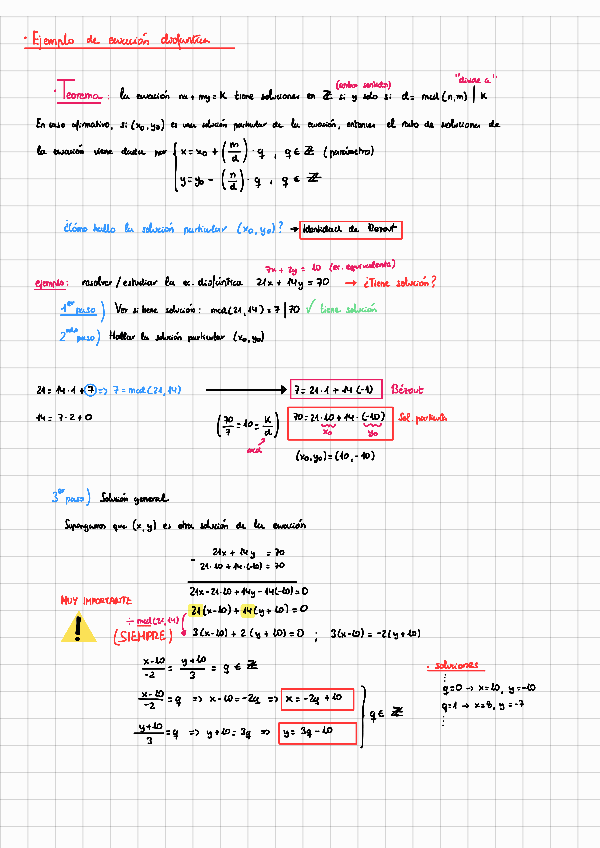 · Ejemplo de ecuación diofántica
(ambos sentidos) "divide a"
· Teorema: la ecuación nx + my = K tiene soluciones en ℤ si y solo si d = mcd(n,m) | K
En caso afirmativo, si (x₀, y₀) es una solución particular de la ecuación, entonces el resto de soluciones de
la ecuación viene dada por { x = x₀ + (m/d) · q , q ∈ ℤ (parámetro)
y = y₀ - (n/d) · q , q ∈ ℤ
¿Cómo hallo la solución particular (x₀, y₀)? → Identidad de Bézout
7x + 2y = 10 (ec. equivalente)
ejemplo: resolver/estudiar la ec. diofántica 21x + 14y = 70 → ¿Tiene solución?
1er paso) Ver si tiene solución: mcd(21,14) = 7 | 70 ✓ tiene solución
2ndo paso) Hallar la solución particular (x₀, y₀)
21 = 14 · 1 + 7 => 7 = mcd(21,14) → 7 = 21 · 1 + 14 (-1) Bézout
14 = 7 · 2 + 0 (70/7 = 10 = K/d) 70 = 21 · 10 + 14 · (-10) Sol. particular
mcd x₀ y₀
(x₀, y₀) = (10, -10)
3er paso) Solución general
Supongamos que (x, y) es otra solución de la ecuación
21x + 14y = 70
- 21 · 10 + 14 · (-10) = 70
21x - 21 · 10 + 14y - 14(-10) = 0
MUY IMPORTANTE 21(x-10) + 14(y+10) = 0
÷ mcd(21,14)
(SIEMPRE) 3(x-10) + 2(y+10) = 0 ; 3(x-10) = -2(y+10)
x-10/-2 = y+10/3 = q ∈ ℤ
x-10/-2 = q => x-10 = -2q => x = -2q + 10
y+10/3 = q => y+10 = 3q => y = 3q - 10
} q ∈ ℤ
· soluciones
q=0 → x=10, y=-10
q=1 → x=8, y=-7